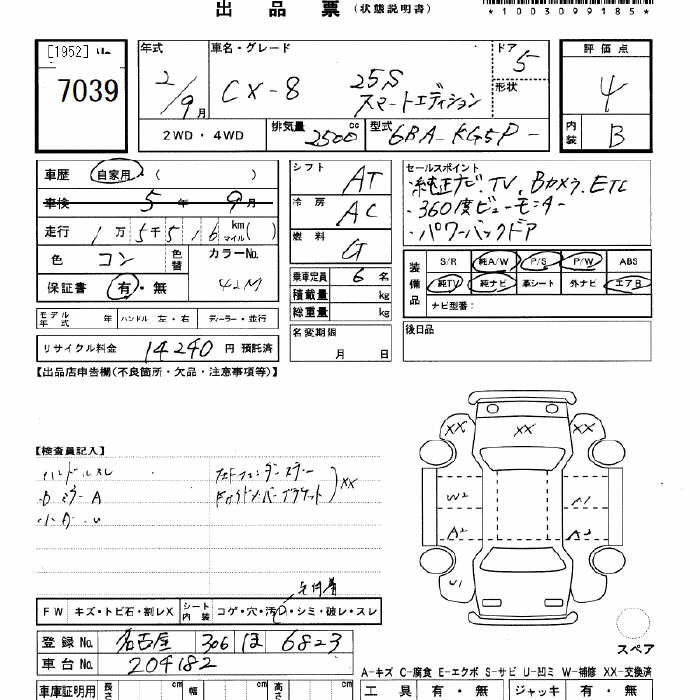 出品票 (状態説明書)
*1003099185*
[1952]
7039
年式 2/9月
車名・グレード CX-8 25S スマートエディション
ドア 5
形状
評価点 4
内装 B
2WD・4WD
排気量 2500 cc
型式 6BA-KG5P-
車歴 自家用 ( )
車検 5年 9月
走行 1万5千516 km マイル( )
色 コン 色替
カラーNo. 42M
保証書 有・無
モデル年式 年 ハンドル 左・右 ディーラー・並行
リサイクル料金 14240 円 預託済
シフト AT
冷房 AC
燃料 G
乗車定員 6名
積載量 kg
総重量 kg
名変期限 月 日
セールスポイント
・純正ナビ.TV.Bカメラ.ETC
・360度ビューモニター
・パワーバックドア
装備品 S/R 純A/W P/S P/W ABS
純TV 純ナビ 革シート 外ナビ エアB
ナビ型番:
後日品
【出品店申告欄(不良箇所・欠品・注意事項等)】
【検査員記入】
ハンドルスレ
XX
XX XX XX
W2 A1
A2 A2
U1
FW キズ・トビ石・割レX シート内装 コゲ・穴・汚レ・シミ・破レ・スレ
スペア
登録No. 名古屋 306 ほ 6823
車台No. 204182
A-キズ C-腐食 E-エクボ S-サビ U-凹ミ W-補修 XX-交換済
車庫証明用 長さ cm 幅 cm 高さ cm
工具 有・無 ジャッキ 有・無